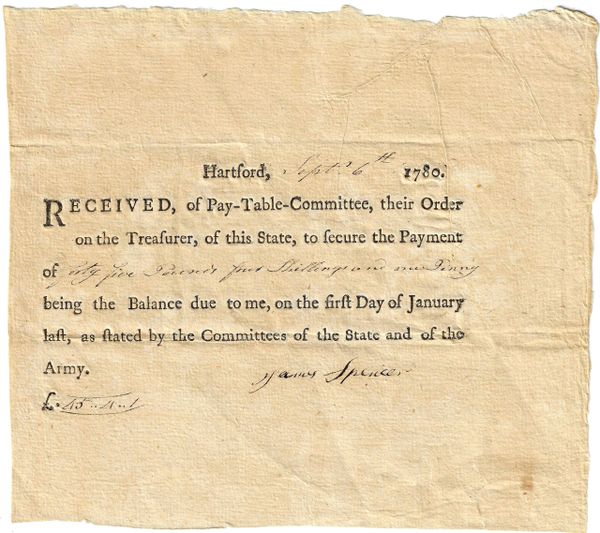 Hartford, Sept. 6th 1780.
RECEIVED, of Pay-Table-Committee, their Order
on the Treaſurer, of this State, to ſecure the Payment
of forty five Pounds four Shillings and one Penny
being the Balance due to me, on the firſt Day of January
laſt, as ſtated by the Committees of the State and of the
Army.
James Spencer
£. 45..4..1